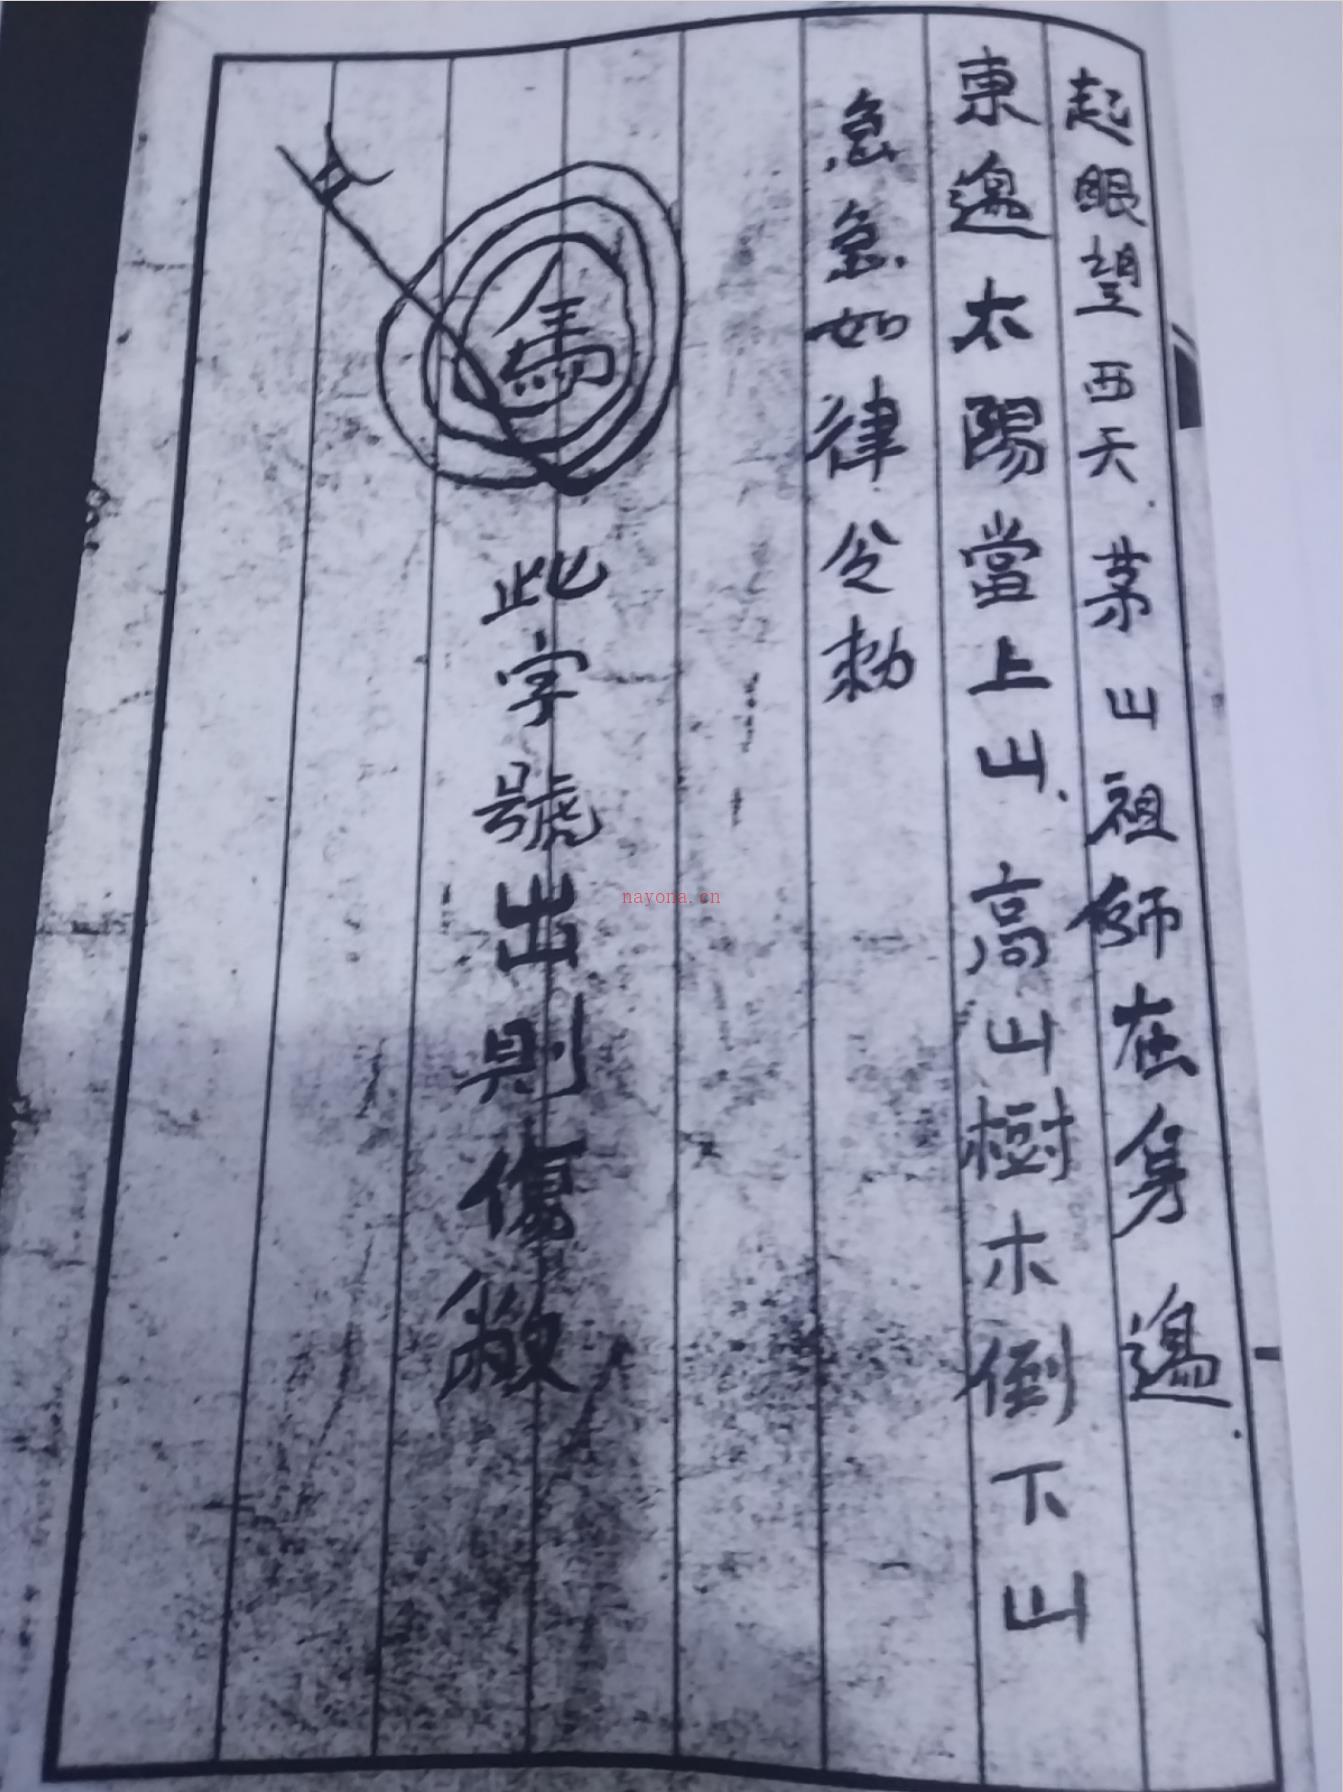 起眼望西天茅山祖師在身邊
東邊太陽當上山高山樹木倒下山
急急如律令勅
此字號出則傷
nayona.cn